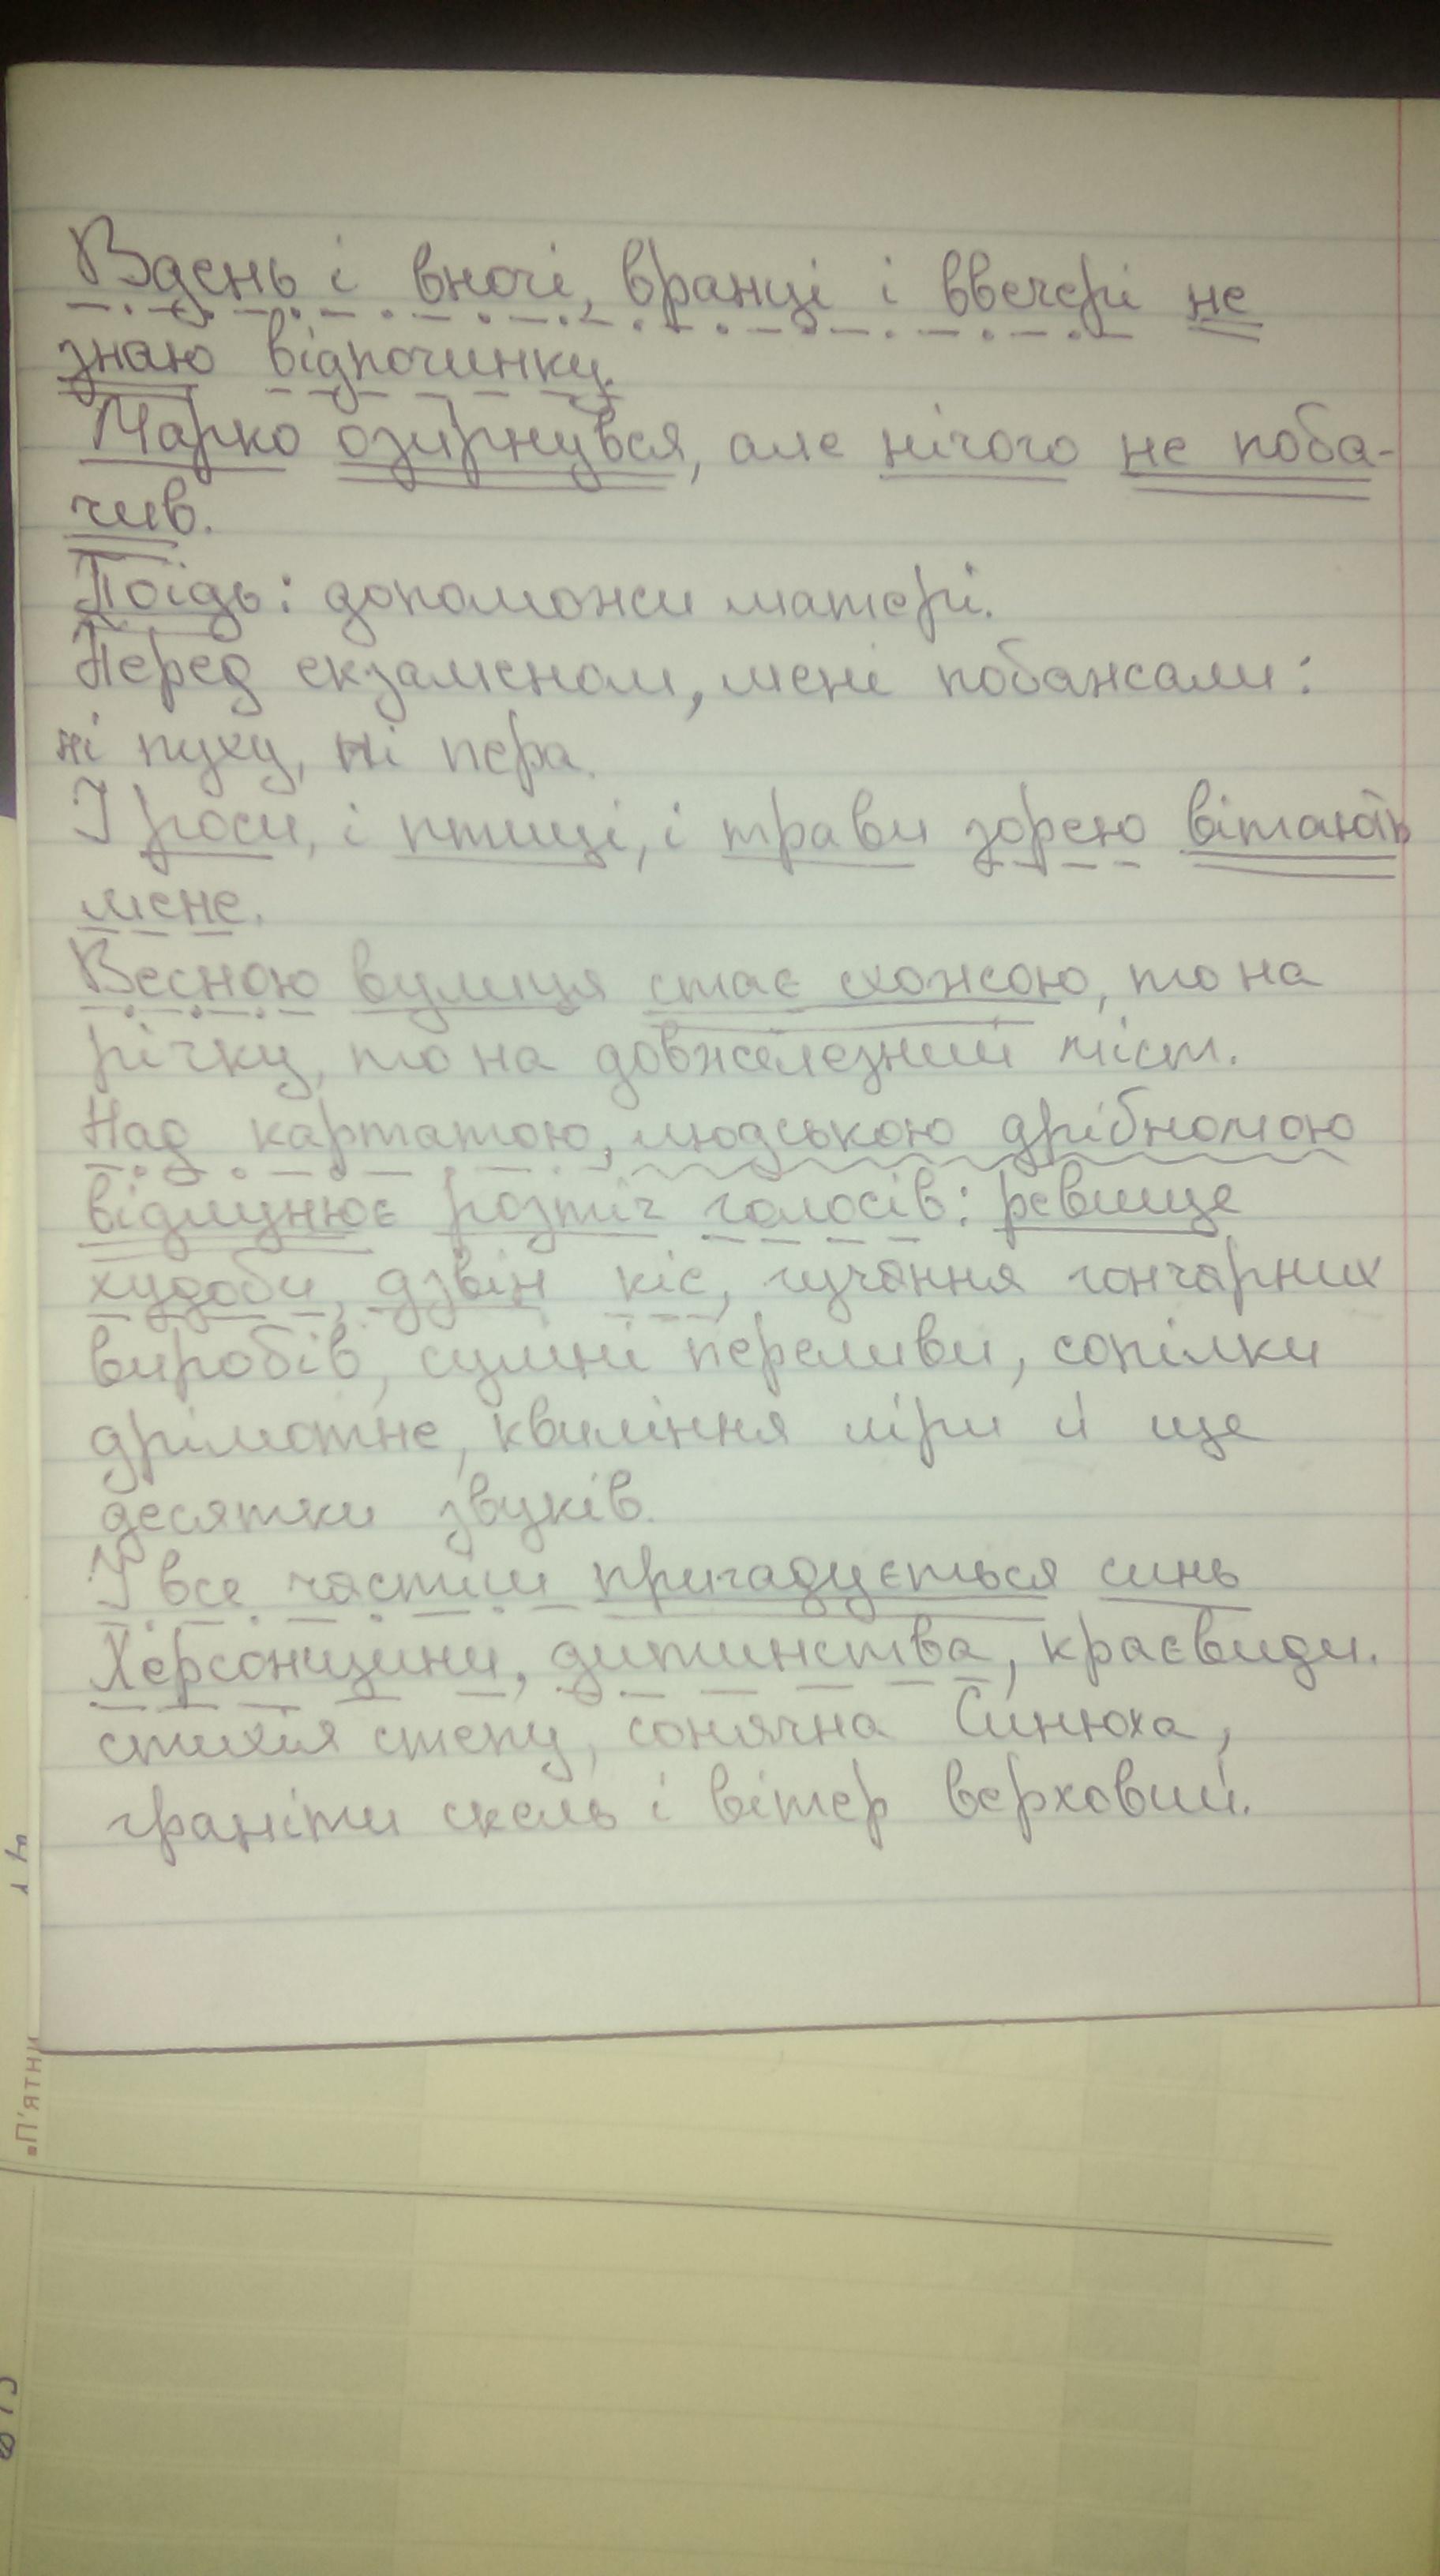 Вдень і вночі, вранці і ввечері не
знаю відпочинку.
Марко озирнувся, але нічого не поба-
чив.
Поїдь: допоможи матері.
Перед екзаменом, мені побажали:
ні пуху, ні пера.
І роси, і птиці, і трави зорею вітають
мене.
Весною вулиця стає схожою, то на
річку, то на довжелезний міст.
Над картатою, людською дрібномою
відлунює розтіч голосів: ревище
худоби, дзвін кіс, гучання гончарних
виробів, сумні переливи, сопілки
дрімотне, квиління ліри й ще
десятки звуків.
І все частіш пригадується синь
Херсонщини, дитинства, краєвиди.
стихія степу, сонячна Синюха,
граніти скель і вітер верховий.
"П'ятни